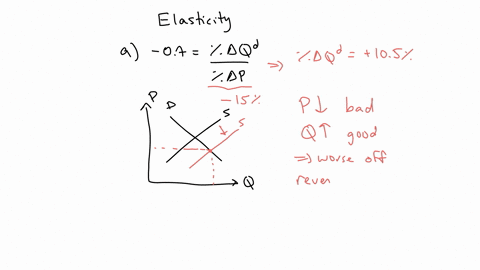 Elasticity
a) -0.7 = %ΔQᵈ / %ΔP => %ΔQᵈ = +10.5%
-15%
P D S S
Q
P↓ bad
Q↑ good
=> worse off
reven